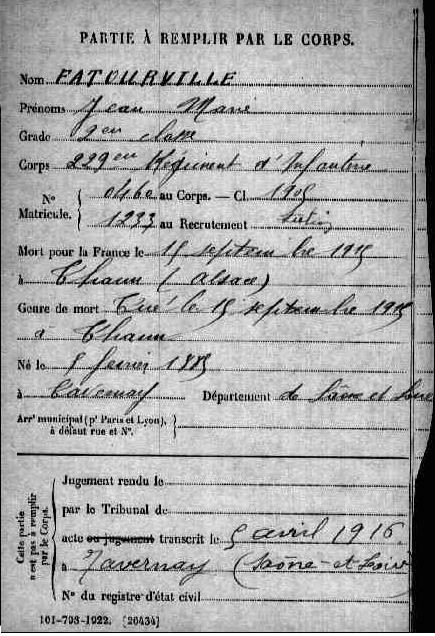 PARTIE À REMPLIR PAR LE CORPS.
Nom FATOURVILLE
Prénoms Jean Marie
Grade 2en classe
Corps 229en Régiment d'Infanterie
No Matricule. { 0460 au Corps. — Cl. 1905
1233 au Recrutement
Mort pour la France le 15 septembre 1915
à Thann (Alsace)
Genre de mort Tué le 15 septembre 1915
à Thann
Né le 8 février 1885
à Département de Saône et Loire
Arrt municipal (pr Paris et Lyon), à défaut rue et No. }
Cette partie n'est pas à remplir par le Corps.
Jugement rendu le
par le Tribunal de
acte ou jugement transcrit le 5 avril 1916
à Tavernay (Saône-et-Loire)
No du registre d'état civil
101-708-1922. [26434]